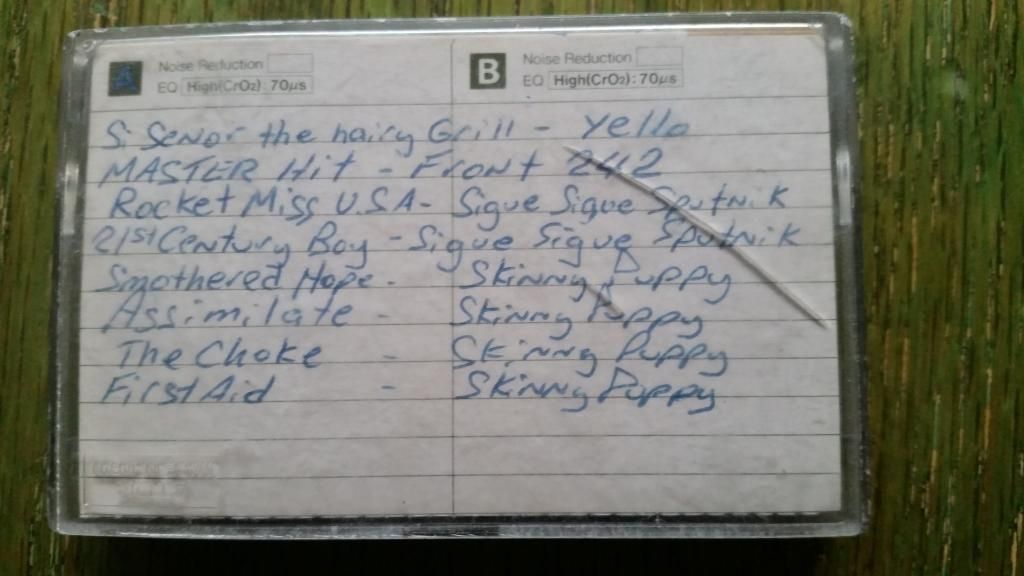 A Noise Reduction
EQ High(CrO2):70µs
B Noise Reduction
EQ High(CrO2):70µs
Si Senor the hairy Grill - Yello
MASTER Hit - Front 242
Rocket Miss U.S.A - Sigue Sigue Sputnik
21st Century Boy - Sigue Sigue Sputnik
Smothered Hope - Skinny Puppy
Assimilate - Skinny Puppy
The Choke - Skinny Puppy
First Aid - Skinny Puppy